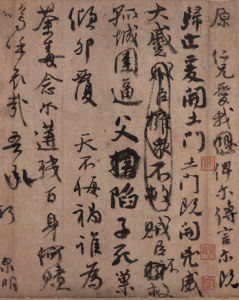 原仁兄愛我恐俾爾傳言爾既
歸止爰開土門土門既開凶威
大蹙賊臣擁眾不救賊臣不救
孤城圍逼父擒陷子死巢
傾卵覆天不悔禍誰為
荼毒念爾遘殘百身何贖
嗚乎哀哉吾承
泉明